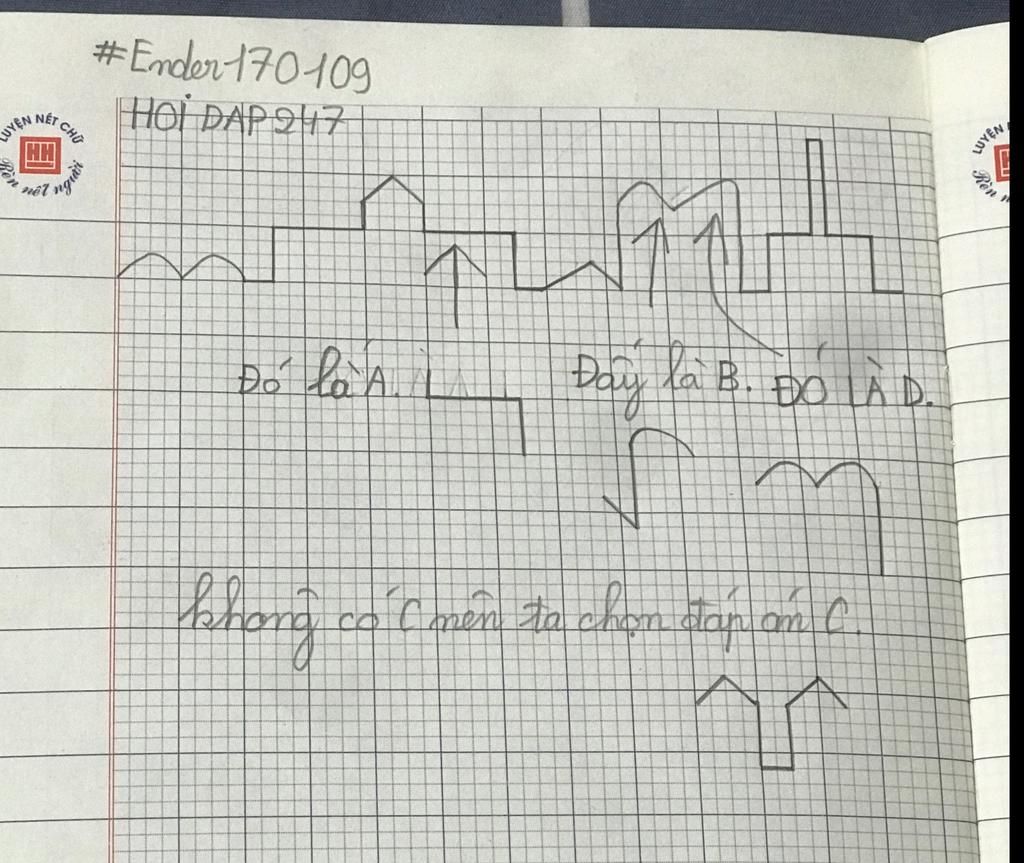 #Ender170109
HOI DAP247
LUYỆN NÉT CHỮ
HH
Rèn nét người
LUYỆN
HH
Rèn
Đó là A.
Đây là B.
ĐÓ LÀ D.
không có C nên ta chọn đáp án C.